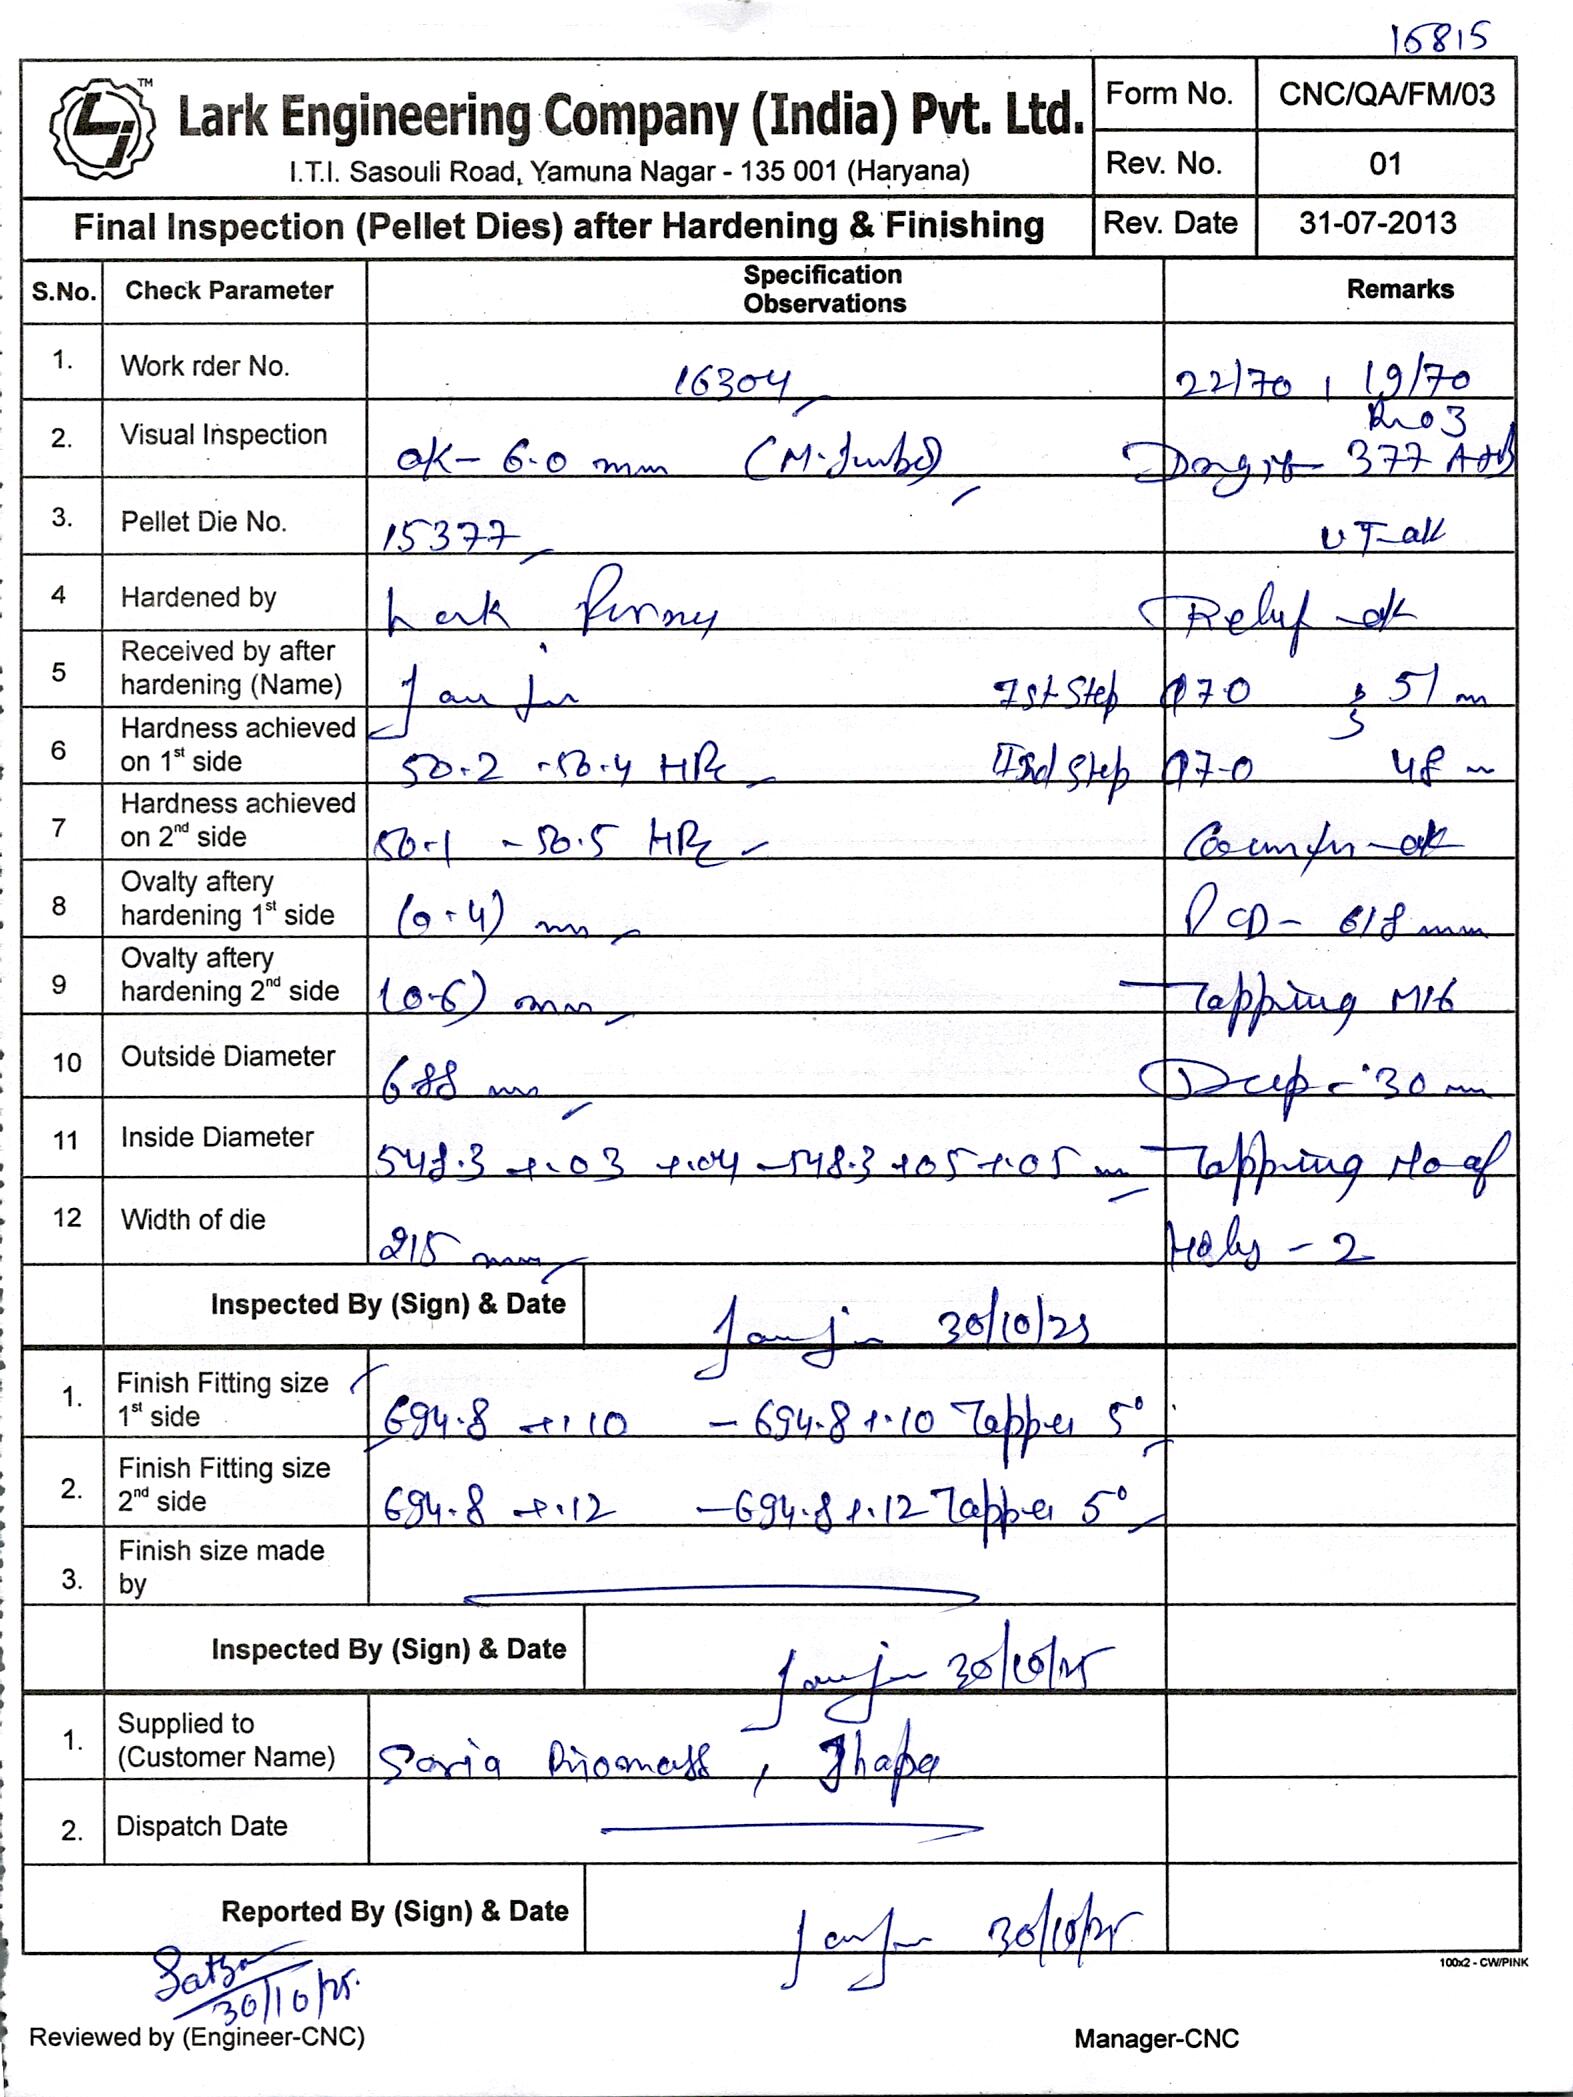 16815
TM
Lark Engineering Company (India) Pvt. Ltd.
I.T.I. Sasouli Road, Yamuna Nagar - 135 001 (Haryana)
Form No. CNC/QA/FM/03
Rev. No. 01
Final Inspection (Pellet Dies) after Hardening & Finishing
Rev. Date 31-07-2013
S.No. Check Parameter Specification Observations Remarks
1. Work rder No. 16304 22/70 , 19/70
2. Visual Inspection ok - 6.0 mm 377
3. Pellet Die No. 15377 UT-ok
4 Hardened by Lark Relief ok
5 Received by after hardening (Name) Ist Step Ø7.0 51 m
6 Hardness achieved on 1st side 50.2 - 50.4 HRc IInd Step Ø7.0 48 m
7 Hardness achieved on 2nd side 50.1 - 50.5 HRc ok
8 Ovalty aftery hardening 1st side (0.4) mm PCD - 618 mm
9 Ovalty aftery hardening 2nd side (0.6) mm Tapping M16
10 Outside Diameter 688 mm Deep - 30 mm
11 Inside Diameter 548.3 +.03 +.04 - 548.3 +.05 +.05 m Tapping No of
12 Width of die 215 mm Holes - 2
Inspected By (Sign) & Date 30/10/25
1. Finish Fitting size 1st side 694.8 +.10 - 694.8 +.10 Tapper 5°
2. Finish Fitting size 2nd side 694.8 +.12 - 694.8 +.12 Tapper 5°
3. Finish size made by
Inspected By (Sign) & Date 30/10/25
1. Supplied to (Customer Name)
2. Dispatch Date
Reported By (Sign) & Date 30/10/25
100x2 - CW/PINK
30/10/25
Reviewed by (Engineer-CNC) Manager-CNC